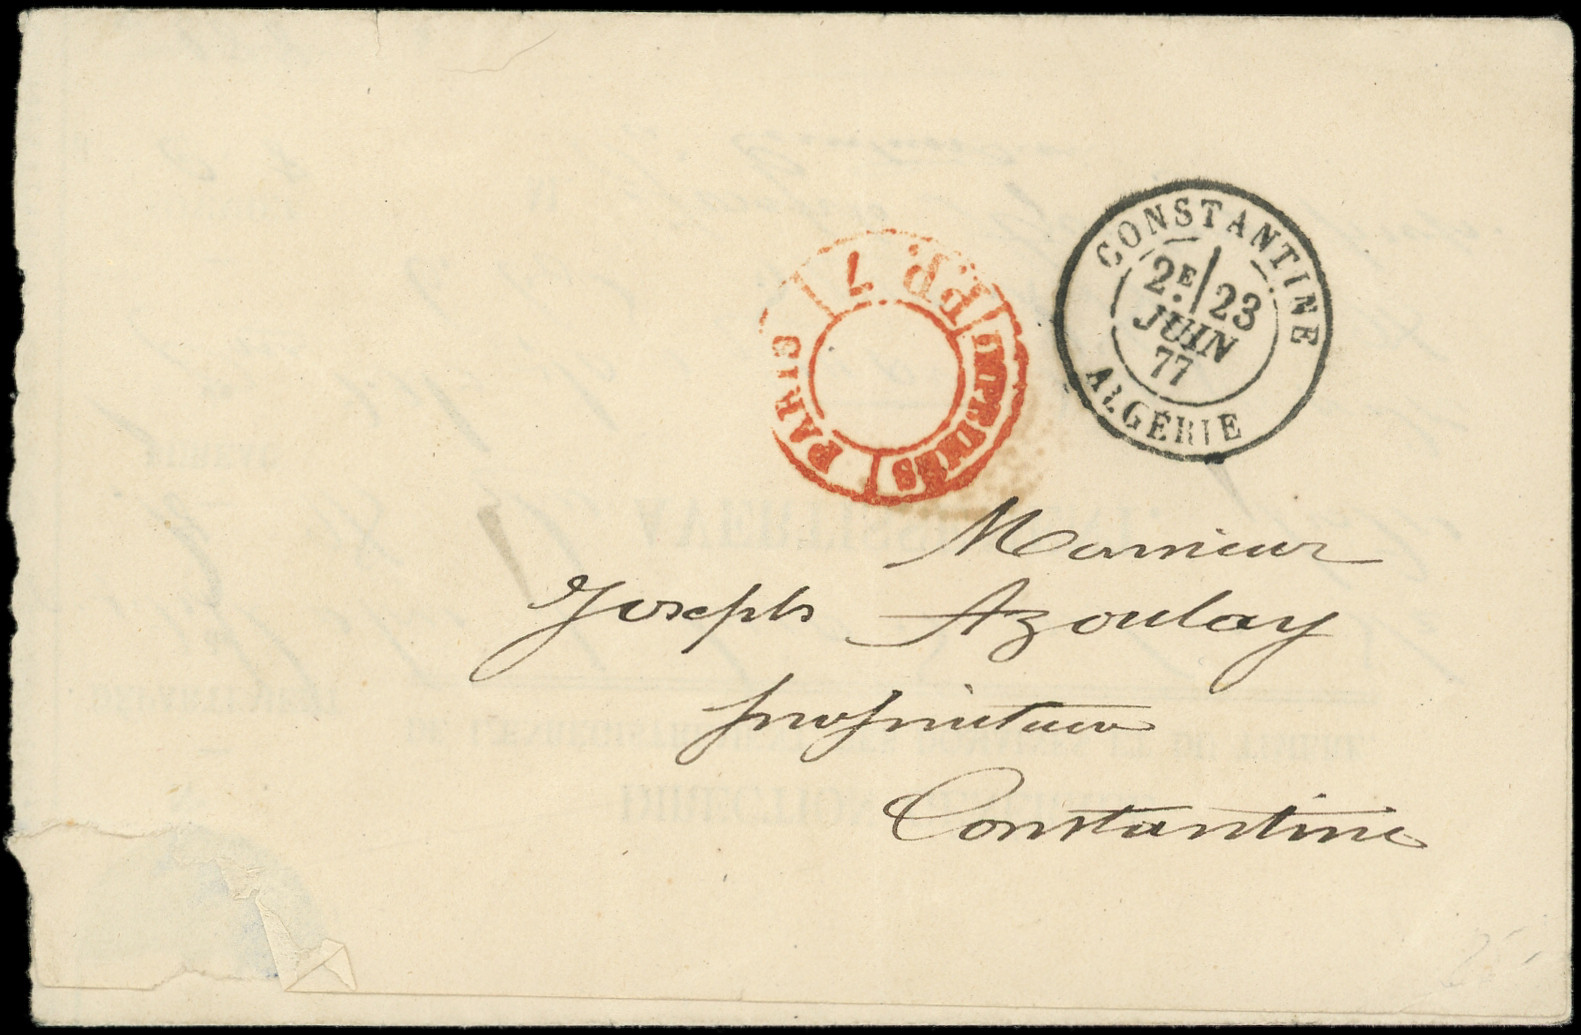 CONSTANTINE
2E 23
JUIN
77
ALGÉRIE
P.P. 7
IMPRIMÉS
PARIS
Monsieur
Joseph Azoulay
propriétaire
Constantine